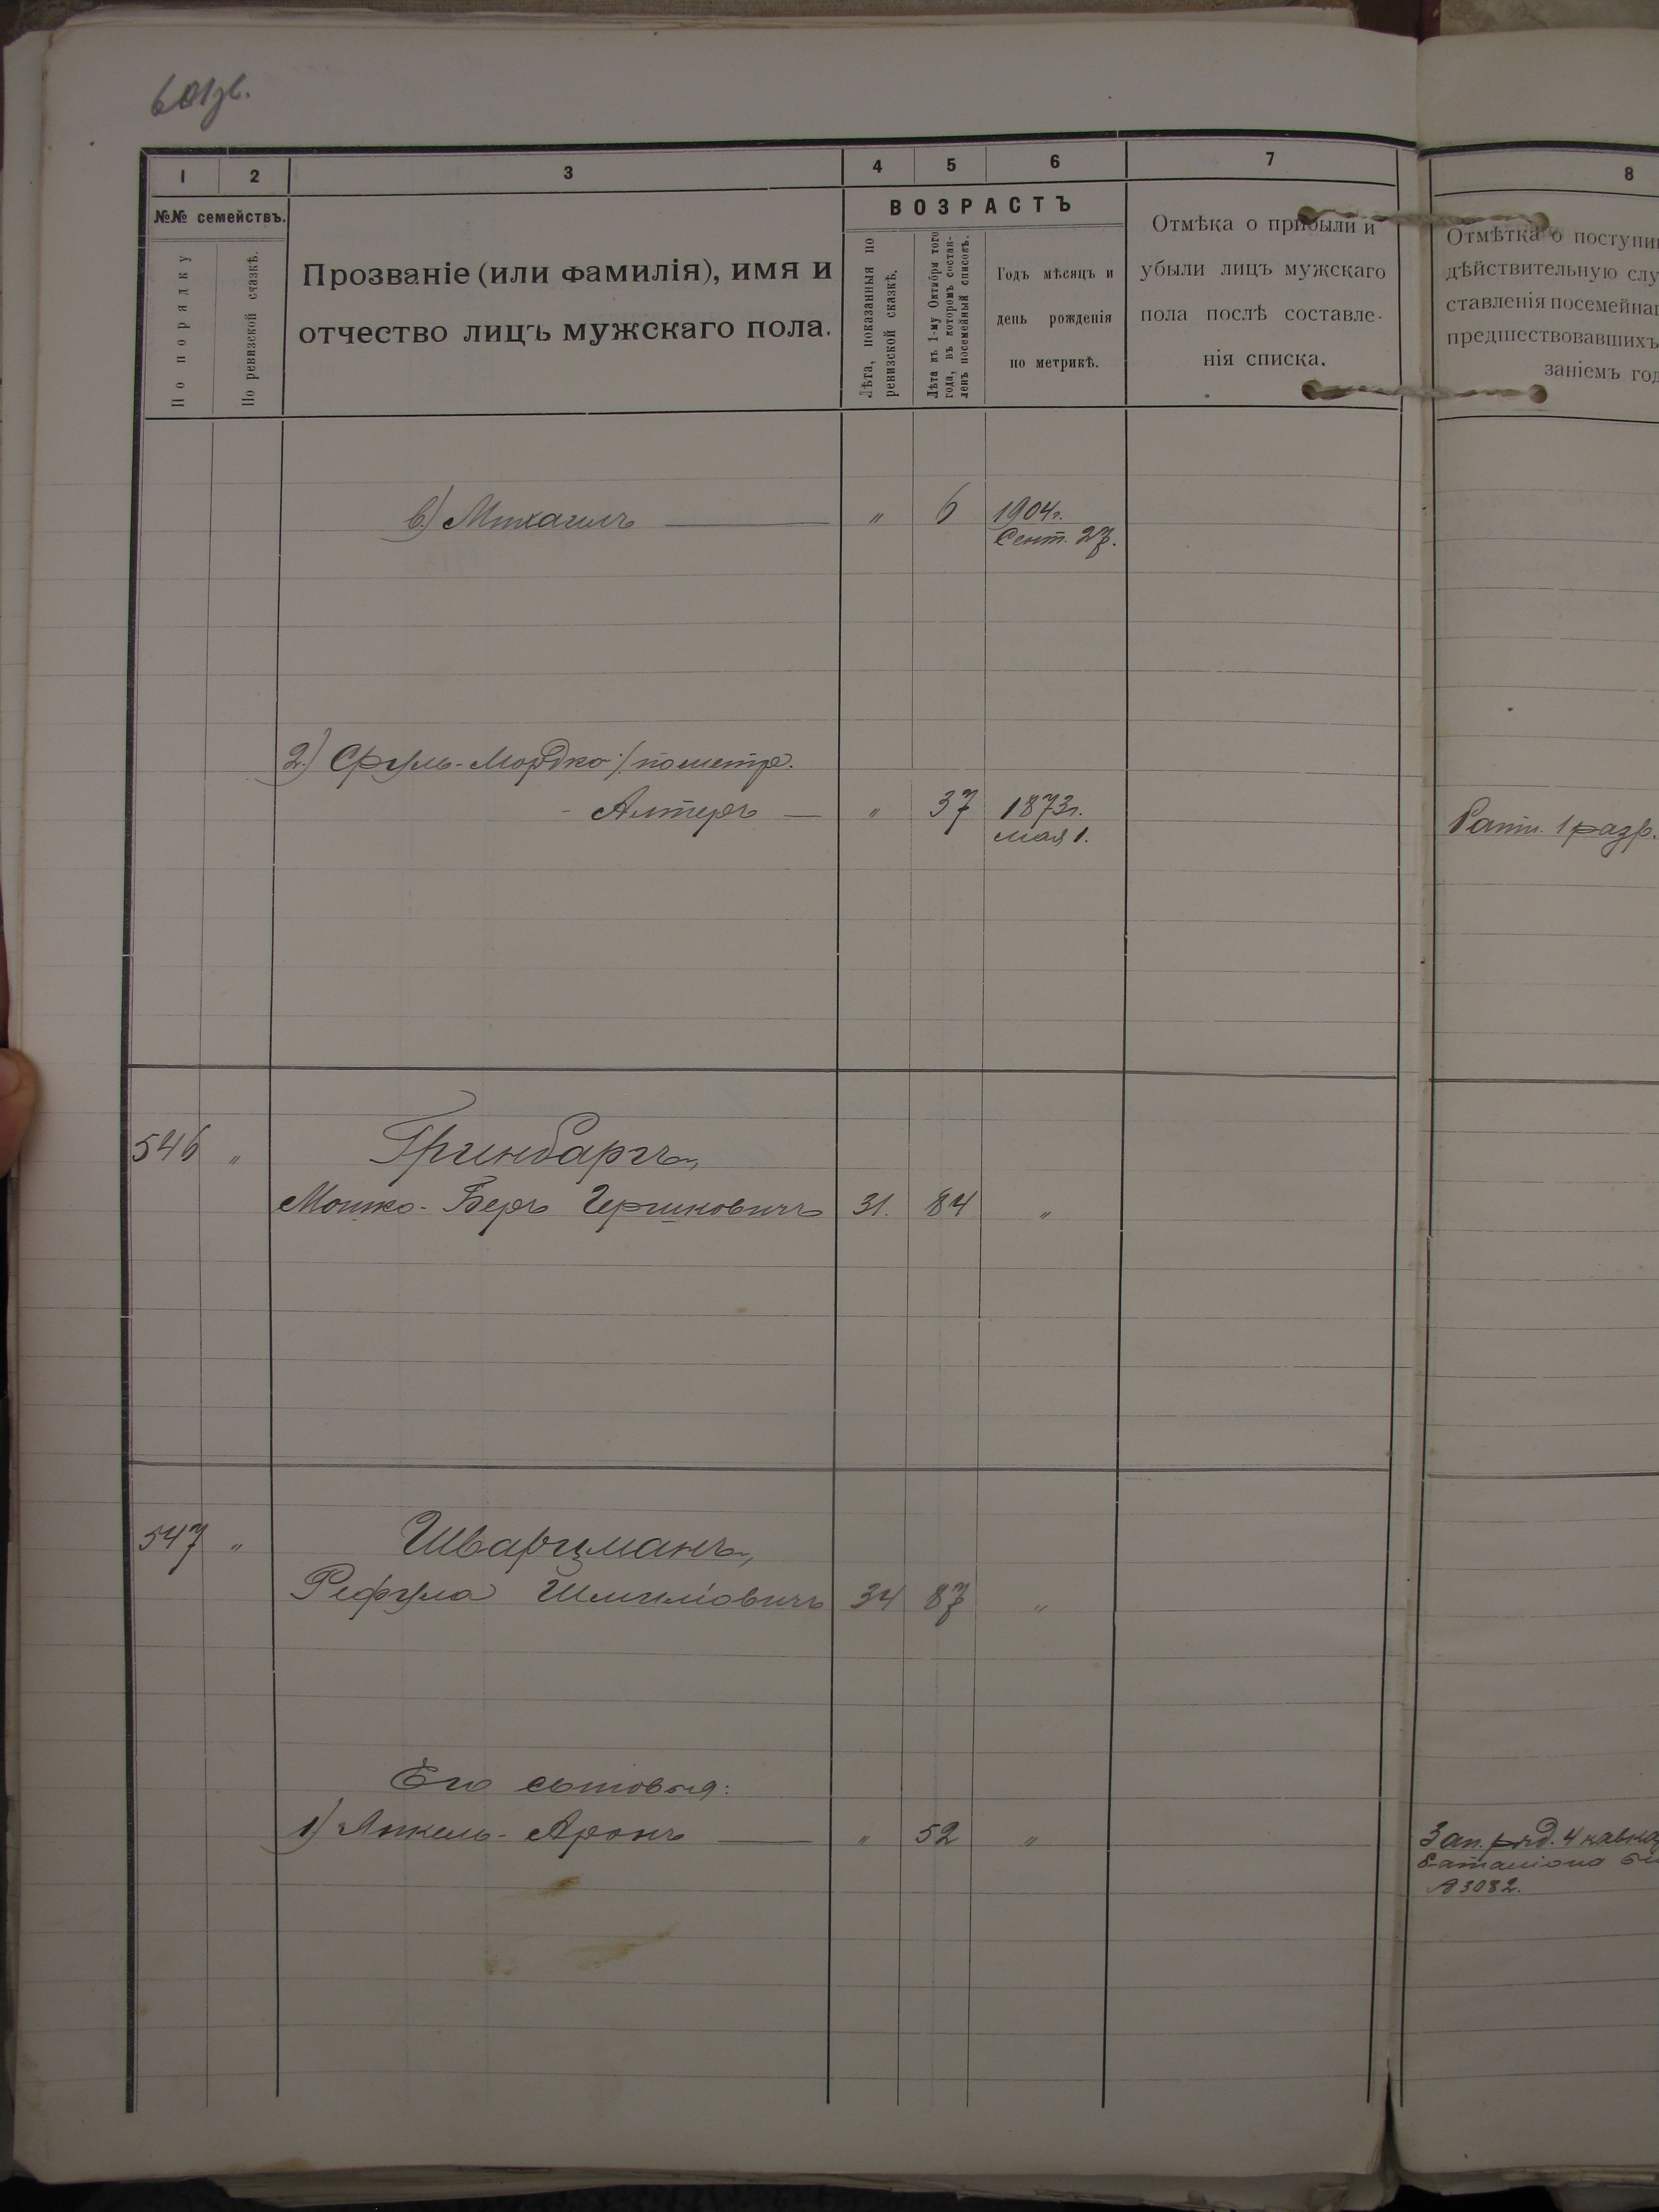 1 2 3 4 5 6 7 8
№№ семействъ.
По порядку
По ревизской сказкѣ.
Прозваніе (или фамилія), имя и
отчество лицъ мужскаго пола.
ВОЗРАСТЪ
Лѣта, показанныя по
ревизской сказкѣ.
Лѣта къ 1-му Октября того
года, въ которомъ состав-
ленъ посемейный списокъ.
Годъ мѣсяцъ и
день рожденія
по метрикѣ.
Отмѣка о прибыли и
убыли лицъ мужскаго
пола послѣ составле-
нія списка.
Отмѣтка о поступи
дѣйствительную слу
ставленія посемейнаг
предшествовавшихъ
заніемъ год
в) Михаилъ „ 6 1904г.
Сент. 27.
2) Сруль-Мордко /: по метр.
- Алтеръ — „ 37 1873г.
мая 1.
Ратн. 1 разр.
546 „ Гринбаргъ,
Мошко-Беръ Гершковичъ 31. 84 „
547 „ Шварцманъ,
Рефула Шмилiовичъ 34 87 „
Его сыновья:
1) Янкель-Аронъ — „ 52 „
Зап. ряд. 4 кавка
баталiона би
№ 3082.